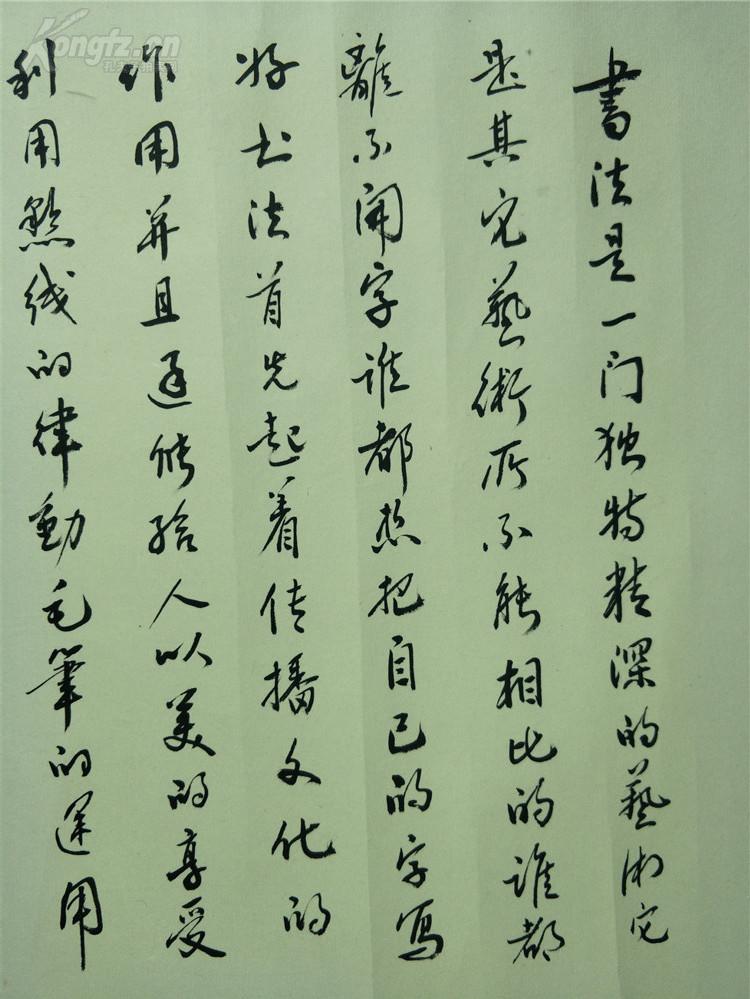 書法是一门独特精深的藝術它
是其它藝術所不能相比的谁都
離不開字谁都想把自己的字写
好书法首先起着传播文化的
作用并且还能给人以美的享受
利用點线的律動毛筆的运用
Kongfz.cn